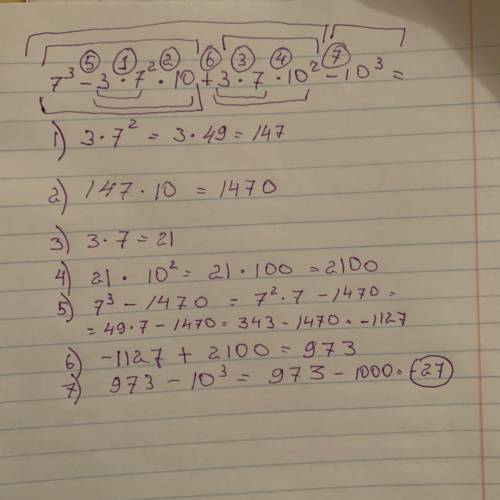 ⑤ ① ② ⑥ ③ ④ ⑦
7³ - 3 · 7² · 10 + 3 · 7 · 10² - 10³ =
1) 3 · 7² = 3 · 49 = 147
2) 147 · 10 = 1470
3) 3 · 7 = 21
4) 21 · 10² = 21 · 100 = 2100
5) 7³ - 1470 = 7² · 7 - 1470 =
= 49 · 7 - 1470 = 343 - 1470 = -1127
6) -1127 + 2100 = 973
7) 973 - 10³ = 973 - 1000 = -27